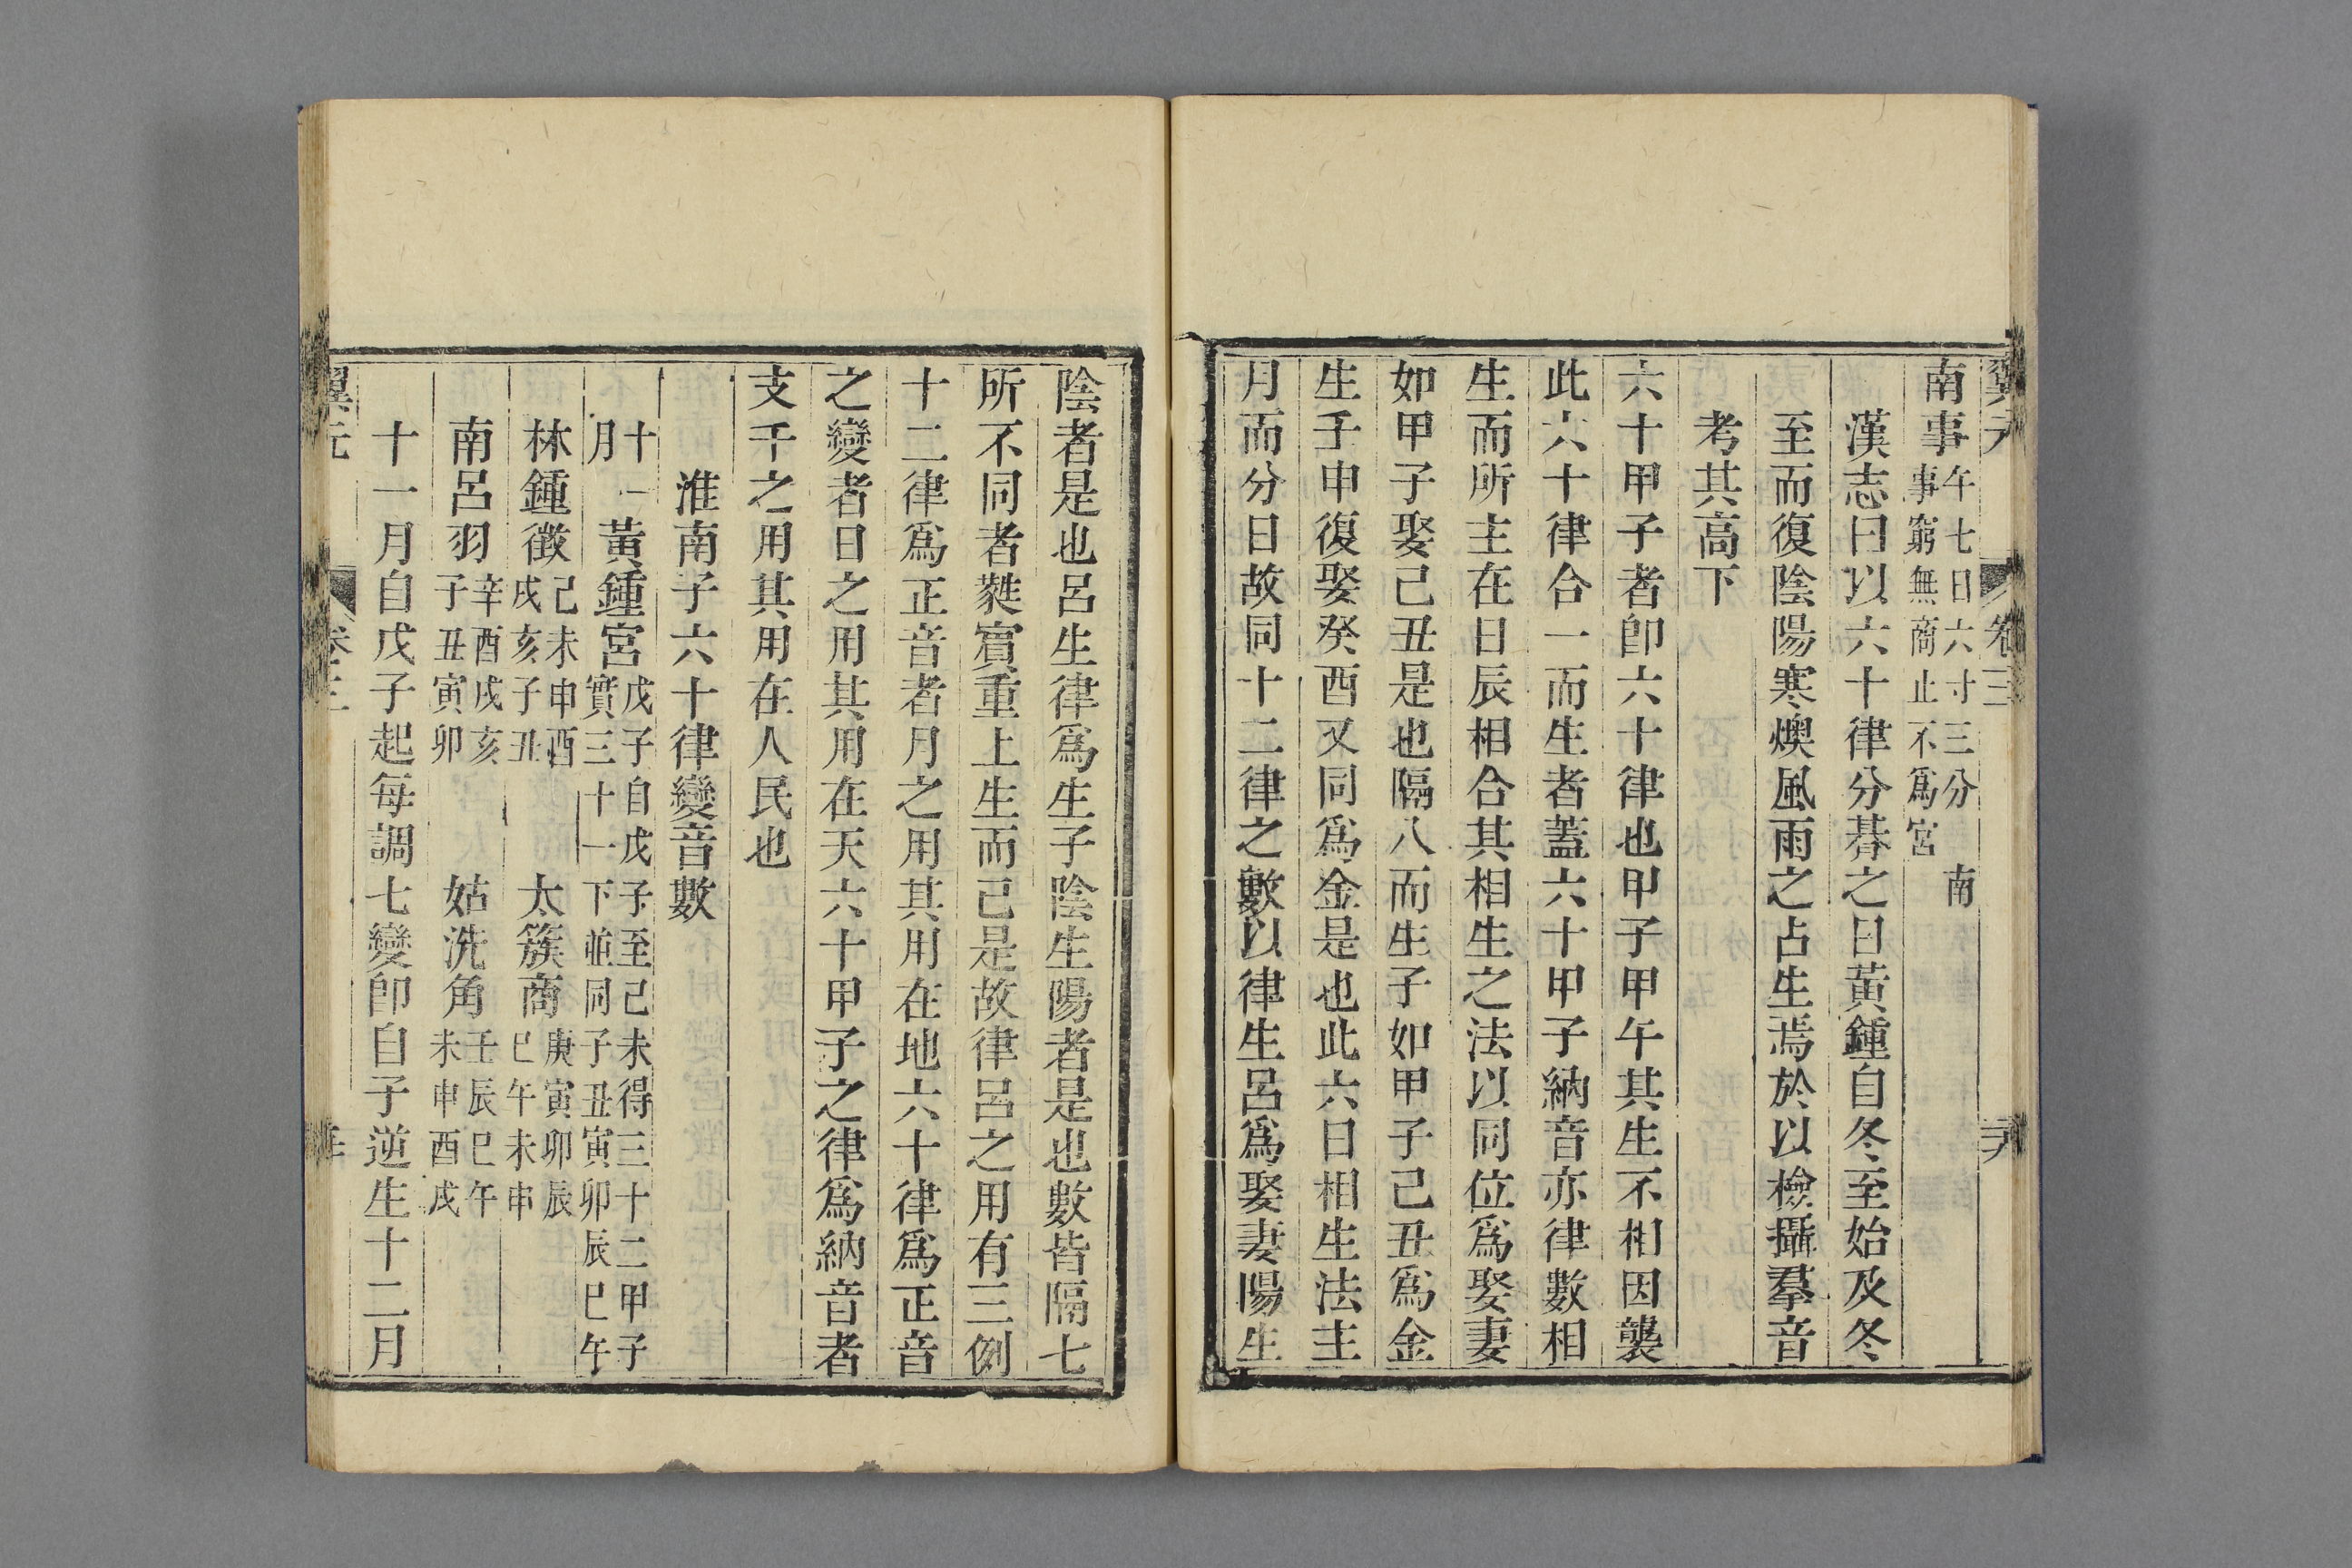 南事午七日六寸三分　南事窮無商止不爲宮
漢志曰以六十律分朞之日黃鍾自冬至始及冬
至而復陰陽寒燠風雨之占生焉於以檢攝羣音
考其高下
六十甲子者卽六十律也甲子甲午其生不相因襲
此六十律合一而生者蓋六十甲子納音亦律數相
生而所主在日辰相合其相生之法以同位爲娶妻
如甲子娶己丑是也隔八而生子如甲子己丑爲金
生子申復娶癸酉又同爲金是也此六日相生法主
月而分日故同十二律之數以律生呂爲娶妻陽生
陰者是也呂生律爲生子陰生陽者是也數皆隔七
所不同者蕤賓重上生而已是故律呂之用有三例
十二律爲正音者月之用其用在地六十律爲正音
之變者日之用其用在天六十甲子之律爲納音者
支干之用其用在人民也
淮南子六十律變音數
十一月黃鍾宮戊子自戊子至己未得三十二甲子實三十一下並同子丑寅卯辰巳午
林鍾徵己未申酉戌亥子丑　太簇商庚寅卯辰巳午未申
南呂羽辛酉戌亥子丑寅卯　姑洗角壬辰巳午未申酉戌
十一月自戊子起每調七變卽自子逆生十二月
卷三